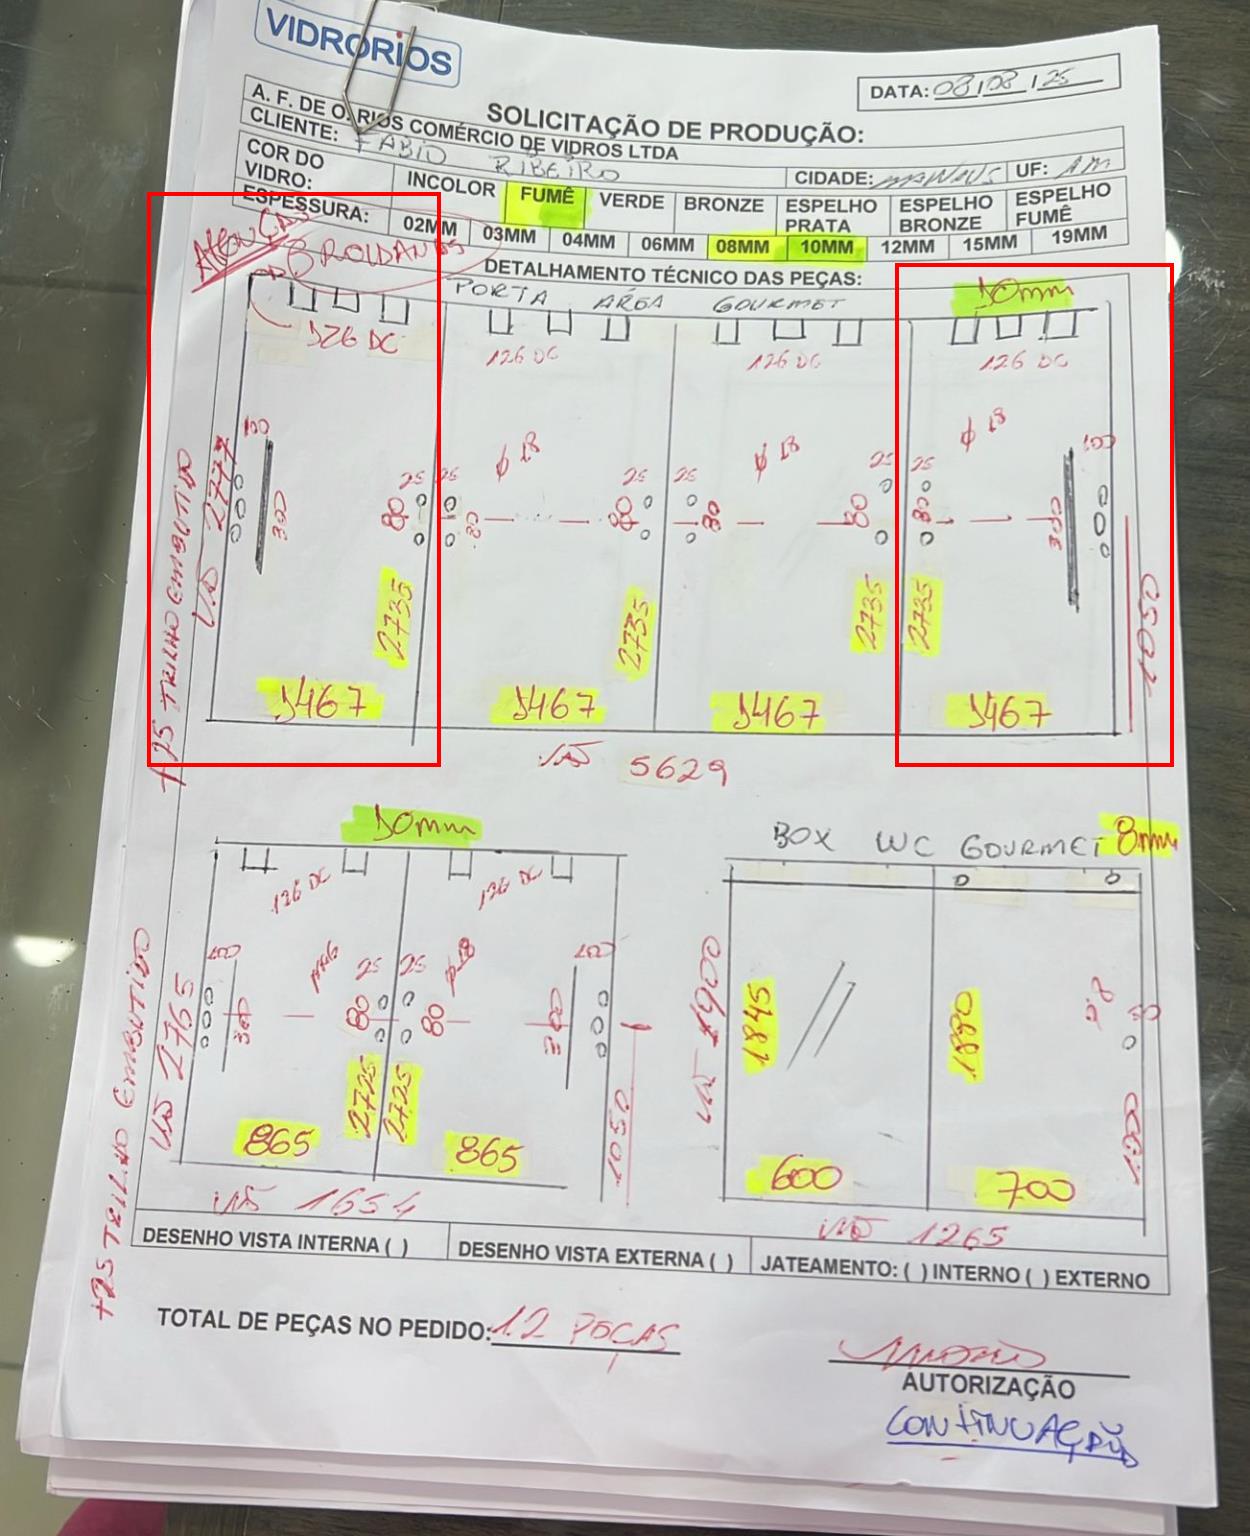 VIDRORIOS
DATA: 08/08/25
SOLICITAÇÃO DE PRODUÇÃO:
A. F. DE O. RIOS COMÉRCIO DE VIDROS LTDA
CLIENTE: FABIO RIBEIRO
CIDADE: MANAUS UF: AM
COR DO VIDRO: INCOLOR FUMÊ VERDE BRONZE ESPELHO PRATA ESPELHO BRONZE ESPELHO FUMÊ
ESPESSURA: 02MM 03MM 04MM 06MM 08MM 10MM 12MM 15MM 19MM
DETALHAMENTO TÉCNICO DAS PEÇAS:
3 ROLDANAS
PORTA AREA GOURMET
10mm
126 DC 126 DC 126 DC 126 DC
100 ø 18 ø 18 ø 18 100
25 25 25 25 25 25
300 80 80 80 80 80 80 300
VÃO 2777
+25 TRILHO EMBUTIDO
2735 2735 2735 2735
1050
1467 1467 1467 1467
VÃO 5629
10mm
BOX WC GOURMET 8mm
126 DC 126 DC
100 25 25 ø 18 100
300 80 80 300
VÃO 2765
+25 TRILHO EMBUTIDO
2725 2725
1050
865 865
VÃO 1654
VÃO 1900
1845 1880
600 700
VÃO 1265
DESENHO VISTA INTERNA ( ) DESENHO VISTA EXTERNA ( ) JATEAMENTO: ( ) INTERNO ( ) EXTERNO
TOTAL DE PEÇAS NO PEDIDO: 12 PEÇAS
AUTORIZAÇÃO
CONTINUAÇÃO